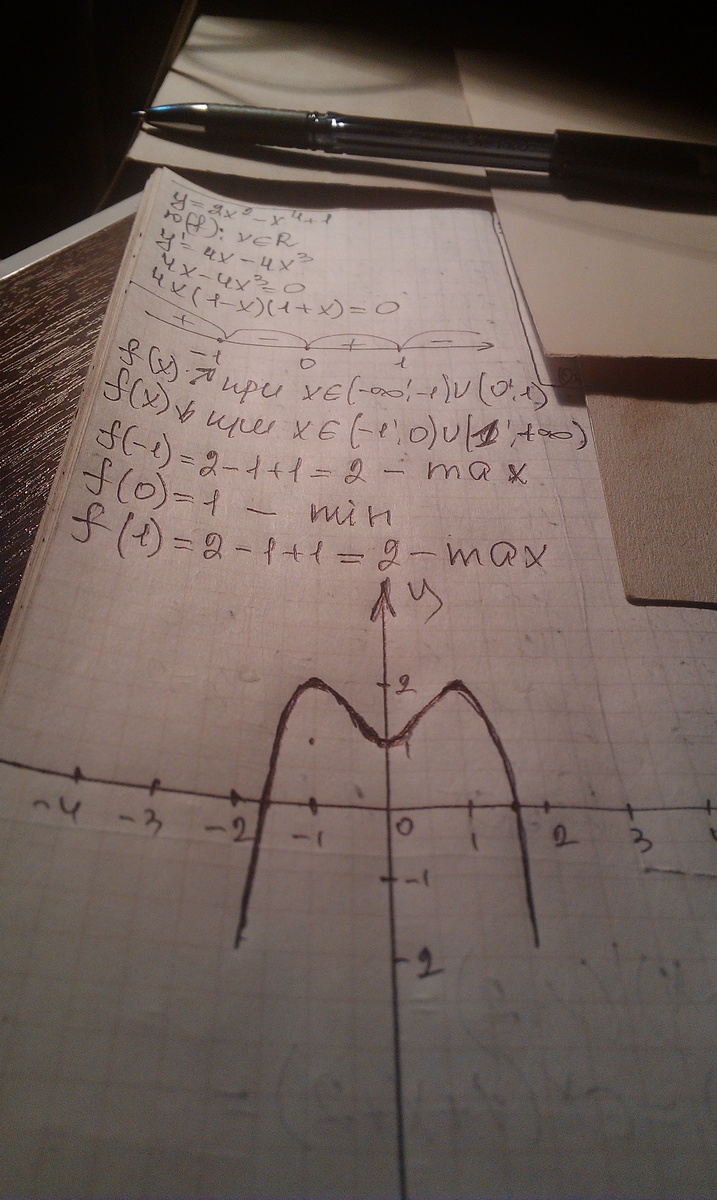 y = 2x² - x⁴ + 1
D(f): x∈R
y' = 4x - 4x³
4x - 4x³ = 0
4x(1-x)(1+x) = 0
+ - + -
-1 0 1
f(x) ↗ при x∈(-∞;-1)∪(0;1)
f(x) ↘ при x∈(-1;0)∪(1;+∞)
f(-1) = 2-1+1 = 2 - max
f(0) = 1 - min
f(1) = 2-1+1 = 2 - max
y
2
1
-4 -3 -2 -1 0 1 2 3
-1
-2